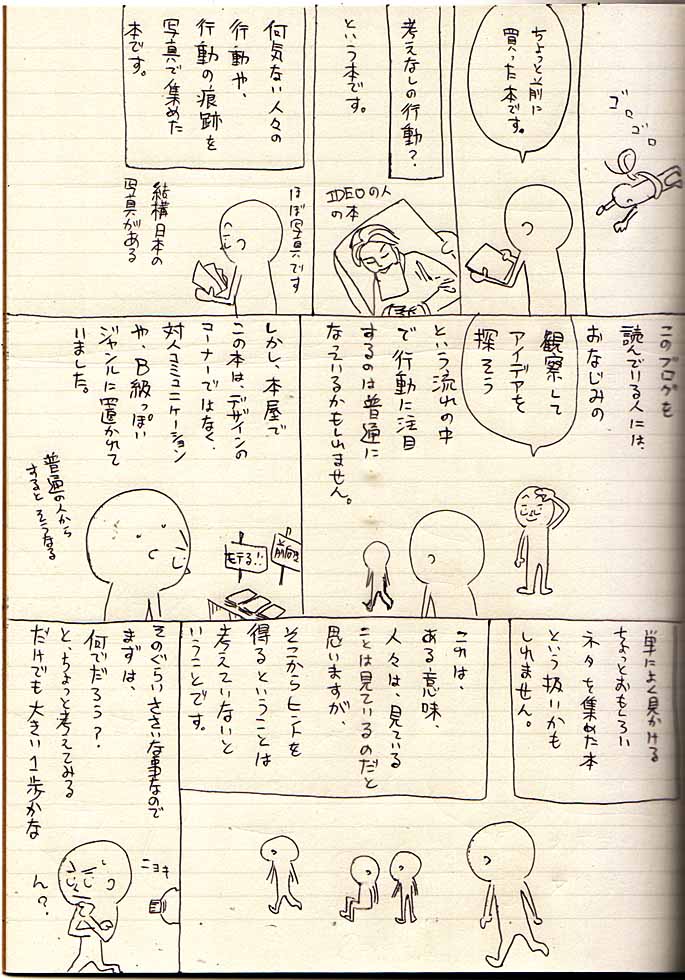 ゴロゴロ
ちょっと前に
買った本です。
考えなしの行動?
という本です。
IDEOの人
の本
何気ない人々の
行動や、
行動の痕跡を
写真で集めた
本です。
ほぼ写真です
結構日本の
写真がある
このブログを
読んでいる人には、
おなじみの
観察して
アイデアを
探そう
という流れの中
で行動に注目
するのは普通に
なっているかもしれません。
しかし、本屋で
この本は、デザインの
コーナーではなく、
対人コミュニケーション
や、B級っぽい
ジャンルに置かれて
いました。
前向き
モテる!!
普通の人から
するとそうなる
単によく見かける
ちょっとおもしろい
ネタを集めた本
という扱いかも
しれません。
これは、
ある意味、
人々は、見ている
ことは見ているのだと
思いますが、
そこからヒントを
得るということは
考えていないと
いうことです。
そのぐらいささいな事なので
まずは、
何でだろう?
と、ちょっと考えてみる
だけでも大きい1歩かな
ニョキ
ん?